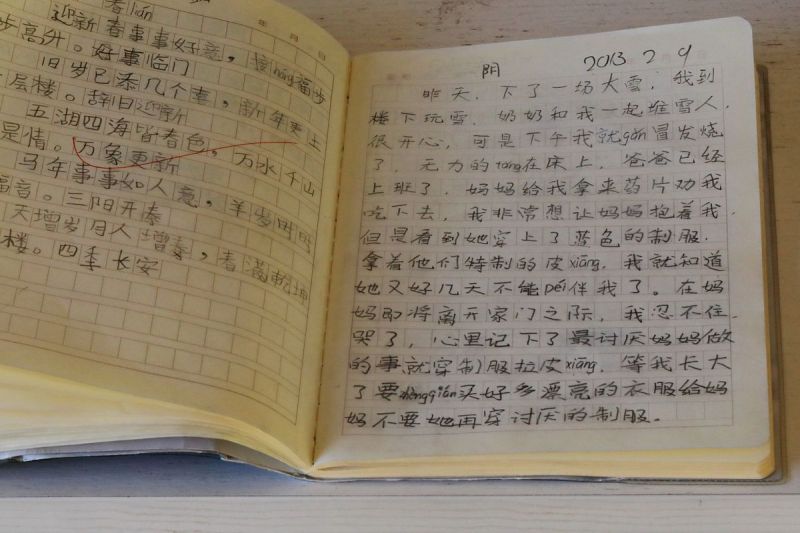 春lián
年 月 日
迎新春事事好意，接nóng福步
步高升。好事临门
旧岁已添几个喜，新年更上
一层楼。辞旧迎新
五湖四海皆春色，万水千山
是情。万象更新
马年事事如人意，羊岁时时
福音。三阳开泰
天增岁月人增寿，春满乾坤
楼。四季长安
阴 2013 2 9
昨天，下了一场大雪，我到
楼下玩雪．奶奶和我一起堆雪人，
很开心，可是下午我就gǎn冒发烧
了，无力的tǎng在床上，爸爸已经
上班了，妈妈给我拿来药片劝我
吃下去，我非常想让妈妈抱着我．
但是看到她穿上了蓝色的制服．
拿着他们特制的皮xiāng．我就知道
她又好几天不能péi伴我了。在妈
妈即将离开家门之际，我忍不住
哭了，心里记下了最讨厌妈妈做
的事就穿制服拉皮xiāng．等我长大
了要zhèngqián买好多漂亮的衣服给妈
妈不要她再穿讨厌的制服。